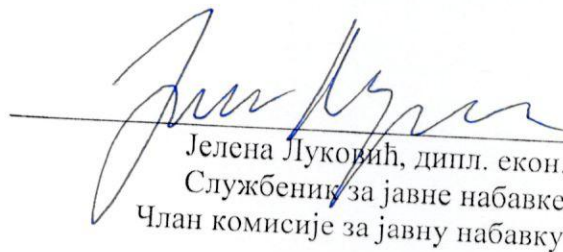 Јелена Луковић, дипл. екон.
Службеник за јавне набавке
Члан комисије за јавну набавку